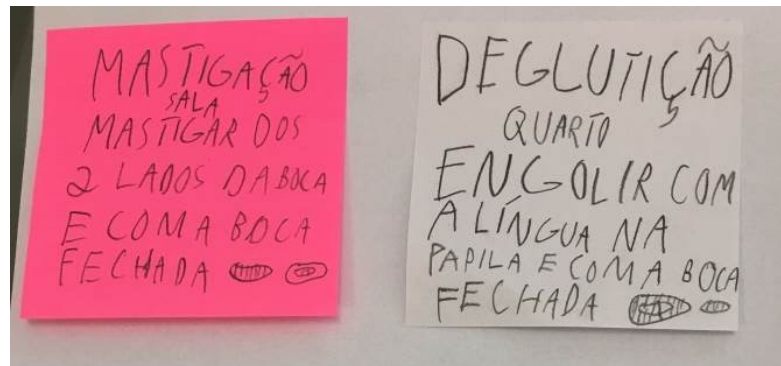 MASTIGAÇÃO
SALA
MASTIGAR DOS
2 LADOS DA BOCA
E COM A BOCA
FECHADA
DEGLUTIÇÃO
QUARTO
ENGOLIR COM
A LÍNGUA NA
PAPILA E COM A BOCA
FECHADA